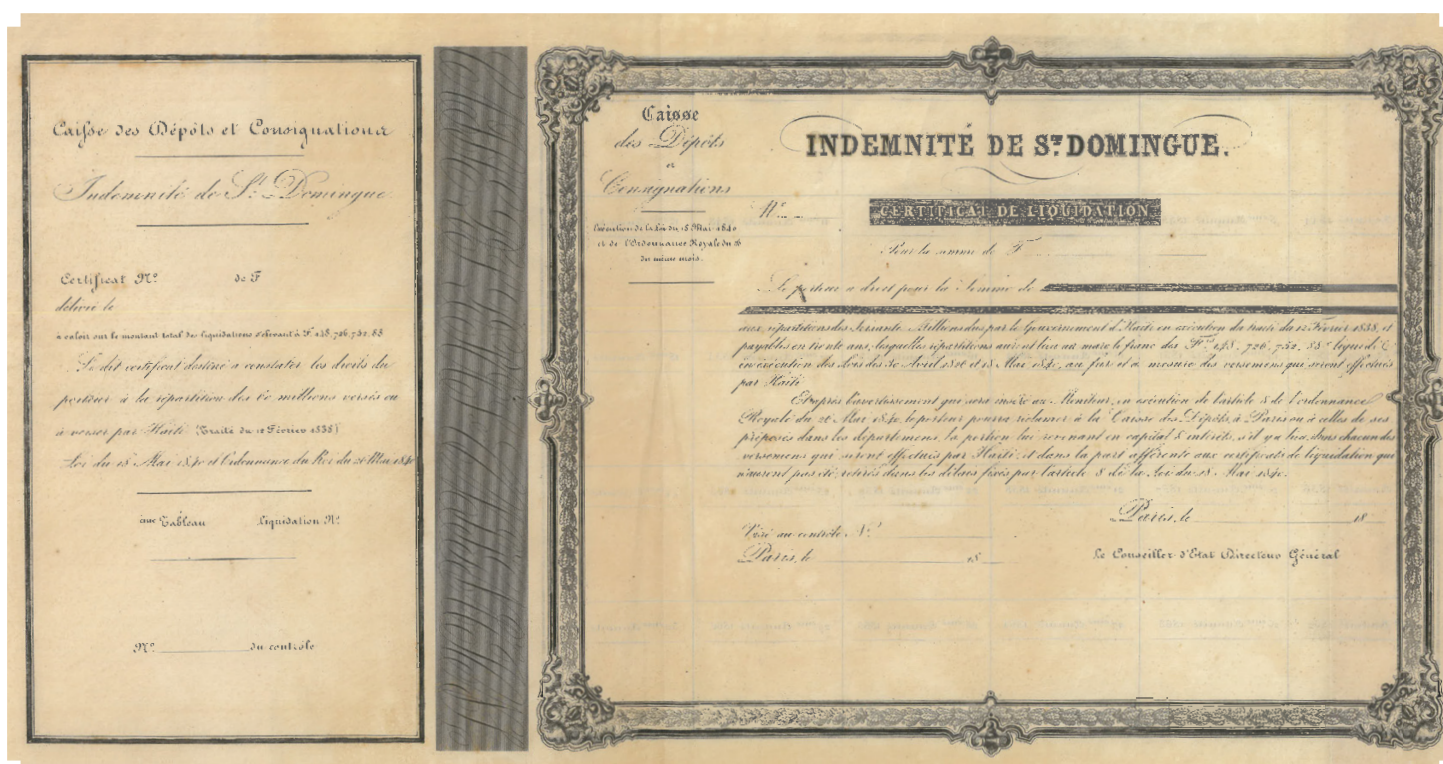 Caisse des Dépôts et Consignations
Indemnité de St. Domingue
Certificat No. de F
délivré le
à valoir sur le montant total des liquidations s'élevant à F. 148,726,752,83
Le dit certificat destiné à constater les droits du
porteur à la répartition des 60 millions versés ou
à verser par Haïti (Traité du 12 Février 1838)
Loi du 18 Mai 1840 et l'ordonnance du Roi du 26 Mai 1840
eme Tableau liquidation No.
No. du contrôle
Caisse
des Dépôts
et
Consignations
Exécution de la Loi du 18 Mai 1840
et de l'Ordonnance Royale du 26
du même mois.
INDEMNITÉ DE ST. DOMINGUE.
No.
CERTIFICAT DE LIQUIDATION
Pour la somme de F
Le porteur a droit pour la Somme de
aux répartitions des Soixante Millions dus par le Gouvernement d'Haïti en exécution du traité du 12 Février 1838, et
payables en trente ans, lesquelles répartitions auront lieu au marc le franc des Frs. 148,726,752,83c liquidés
en exécution des Lois des 30 Avril 1826 et 18 Mai 1840, au fur et à mesure des versemens qui seront effectués
par Haïti
Et après l'avertissement qui sera inséré au Moniteur, en exécution de l'article 8 de l'ordonnance
Royale du 26 Mai 1840, le porteur pourra réclamer à la Caisse des Dépôts, à Paris ou à celles de ses
préposés dans les départemens, la portion lui revenant en capital & intérêts, s'il y a lieu, dans chacun des
versemens qui seront effectués par Haïti, et dans la part afférente aux certificats de liquidation qui
n'auront pas été retirés dans les délais fixés par l'article 8 de la Loi du 18 Mai 1840.
Paris, le 18
Visé au contrôle No.
Paris, le 18
Le Conseiller d'État Directeur Général